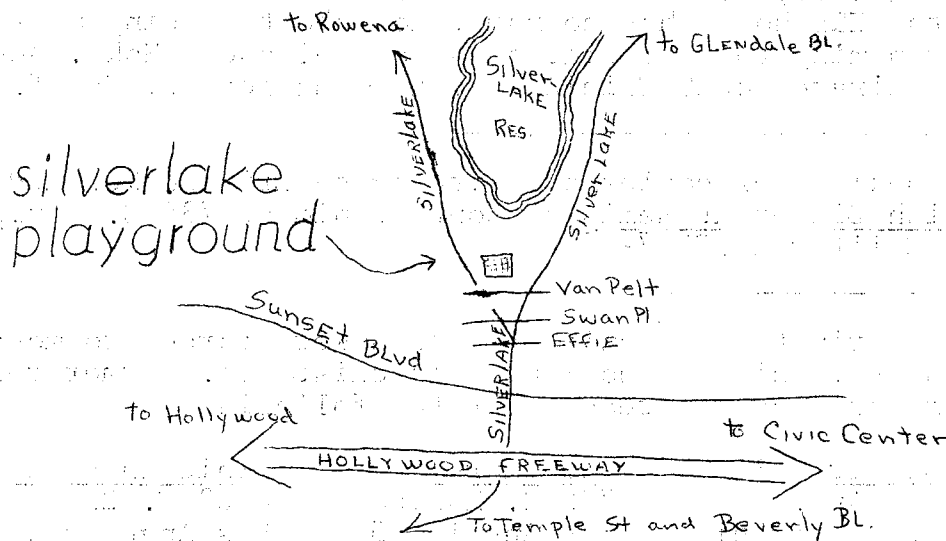 to Rowena
to GLENdale BL.
Silver-
LAKE
RES.
SILVERLAKE
SILVER LAKE
silverlake
playground
Van Pelt
Swan Pl.
EFFIE
SunsEt BLvd
SILVERLAKE
to Hollywood
to Civic Center
HOLLYWOOD FREEWAY
To Temple St and Beverly BL.